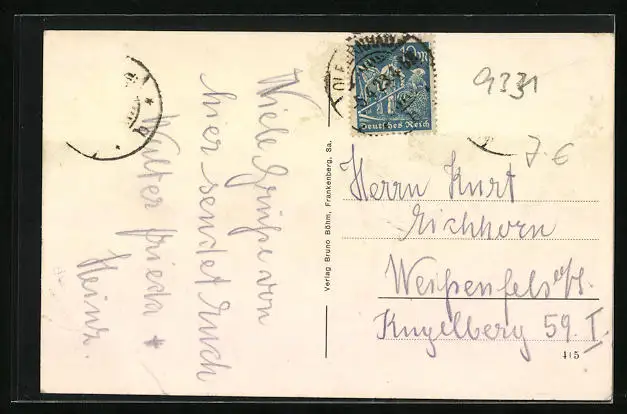 Viele Grüße von
hier sendet Euch
Walter Frieda +
Heinz.
Verlag Bruno Böhm, Frankenberg, Sa.
OLBERNHAU
Deutsches Reich
9331
7 €
Herrn Kurt
Eichhorn
Weißenfels a/S.
Kugelberg 59. I.
415